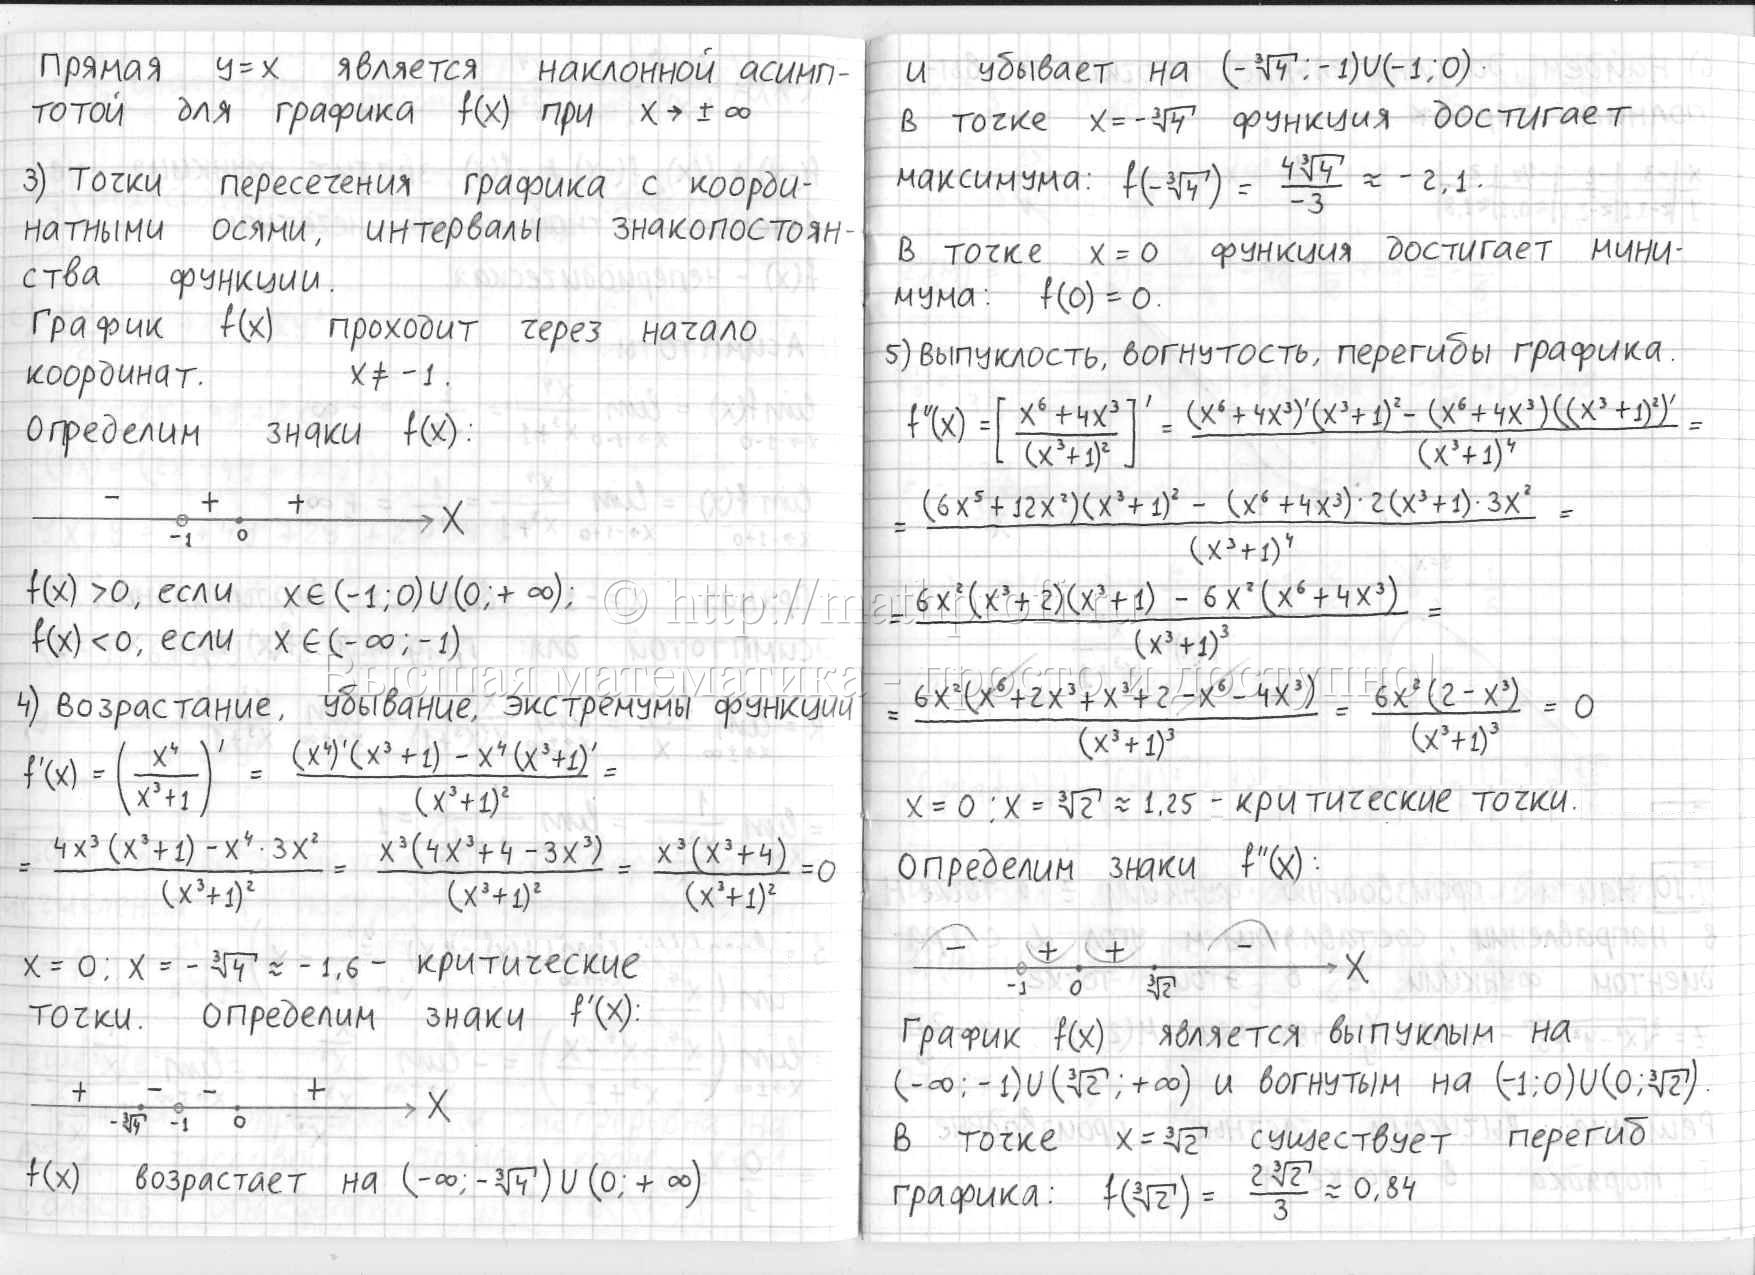 Прямая y=x является наклонной асимп-
тотой для графика f(x) при x→±∞
3) Точки пересечения графика с коорди-
натными осями, интервалы знакопостоян-
ства функции.
График f(x) проходит через начало
координат. x≠-1.
Определим знаки f(x):
- + + X
-1 0
f(x)>0, если x∈(-1;0)∪(0;+∞);
f(x)<0, если x∈(-∞;-1)
4) Возрастание, убывание, экстремумы функции
f'(x) = (x⁴/(x³+1))' = ((x⁴)'(x³+1) - x⁴(x³+1)')/(x³+1)² =
= (4x³(x³+1) - x⁴·3x²)/(x³+1)² = x³(4x³+4-3x³)/(x³+1)² = x³(x³+4)/(x³+1)² = 0
x=0; x=-∛4 ≈ -1,6 - критические
точки. Определим знаки f'(x):
+ - - + X
-∛4 -1 0
f(x) возрастает на (-∞;-∛4)∪(0;+∞)
и убывает на (-∛4;-1)∪(-1;0).
В точке x=-∛4 функция достигает
максимума: f(-∛4) = 4∛4/-3 ≈ -2,1.
В точке x=0 функция достигает мини-
мума: f(0)=0.
5) Выпуклость, вогнутость, перегибы графика.
f''(x) = [(x⁶+4x³)/(x³+1)²]' = ((x⁶+4x³)'(x³+1)² - (x⁶+4x³)((x³+1)²)')/(x³+1)⁴ =
= ((6x⁵+12x²)(x³+1)² - (x⁶+4x³)·2(x³+1)·3x²)/(x³+1)⁴ =
= (6x²(x³+2)(x³+1) - 6x²(x⁶+4x³))/(x³+1)³ =
= 6x²(x⁶+2x³+x³+2-x⁶-4x³)/(x³+1)³ = 6x²(2-x³)/(x³+1)³ = 0
x=0; x=∛2 ≈ 1,25 - критические точки.
Определим знаки f''(x):
- + + - X
-1 0 ∛2
График f(x) является выпуклым на
(-∞;-1)∪(∛2;+∞) и вогнутым на (-1;0)∪(0;∛2).
В точке x=∛2 существует перегиб
графика: f(∛2) = 2∛2/3 ≈ 0,84
© http://mathprofi.ru
Высшая математика - просто и доступно!